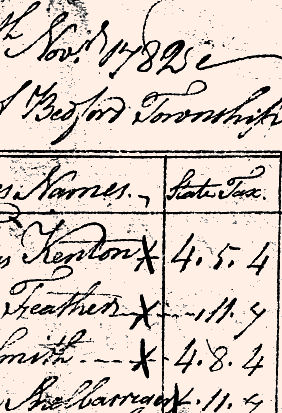 th Nov.r 1782
f Bedford Township
s Names. State Tax.
s Kenton x 4. 5. 4
Feather x .11. 7
mith x 4. 8. 4
x 4. 11. 4